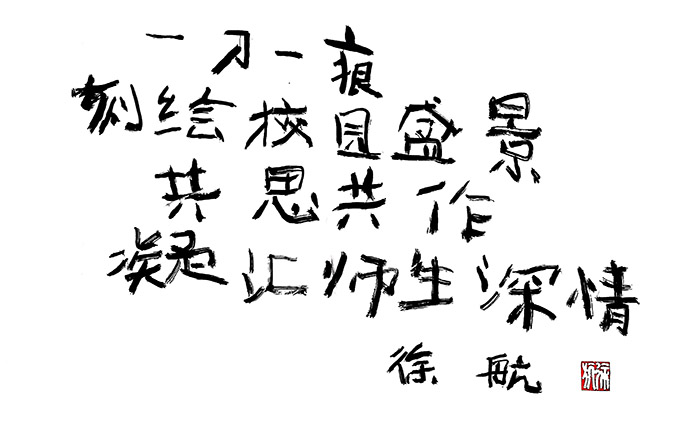 一刀一痕
刻绘校园盛景
共思共作
凝汇师生深情
徐航